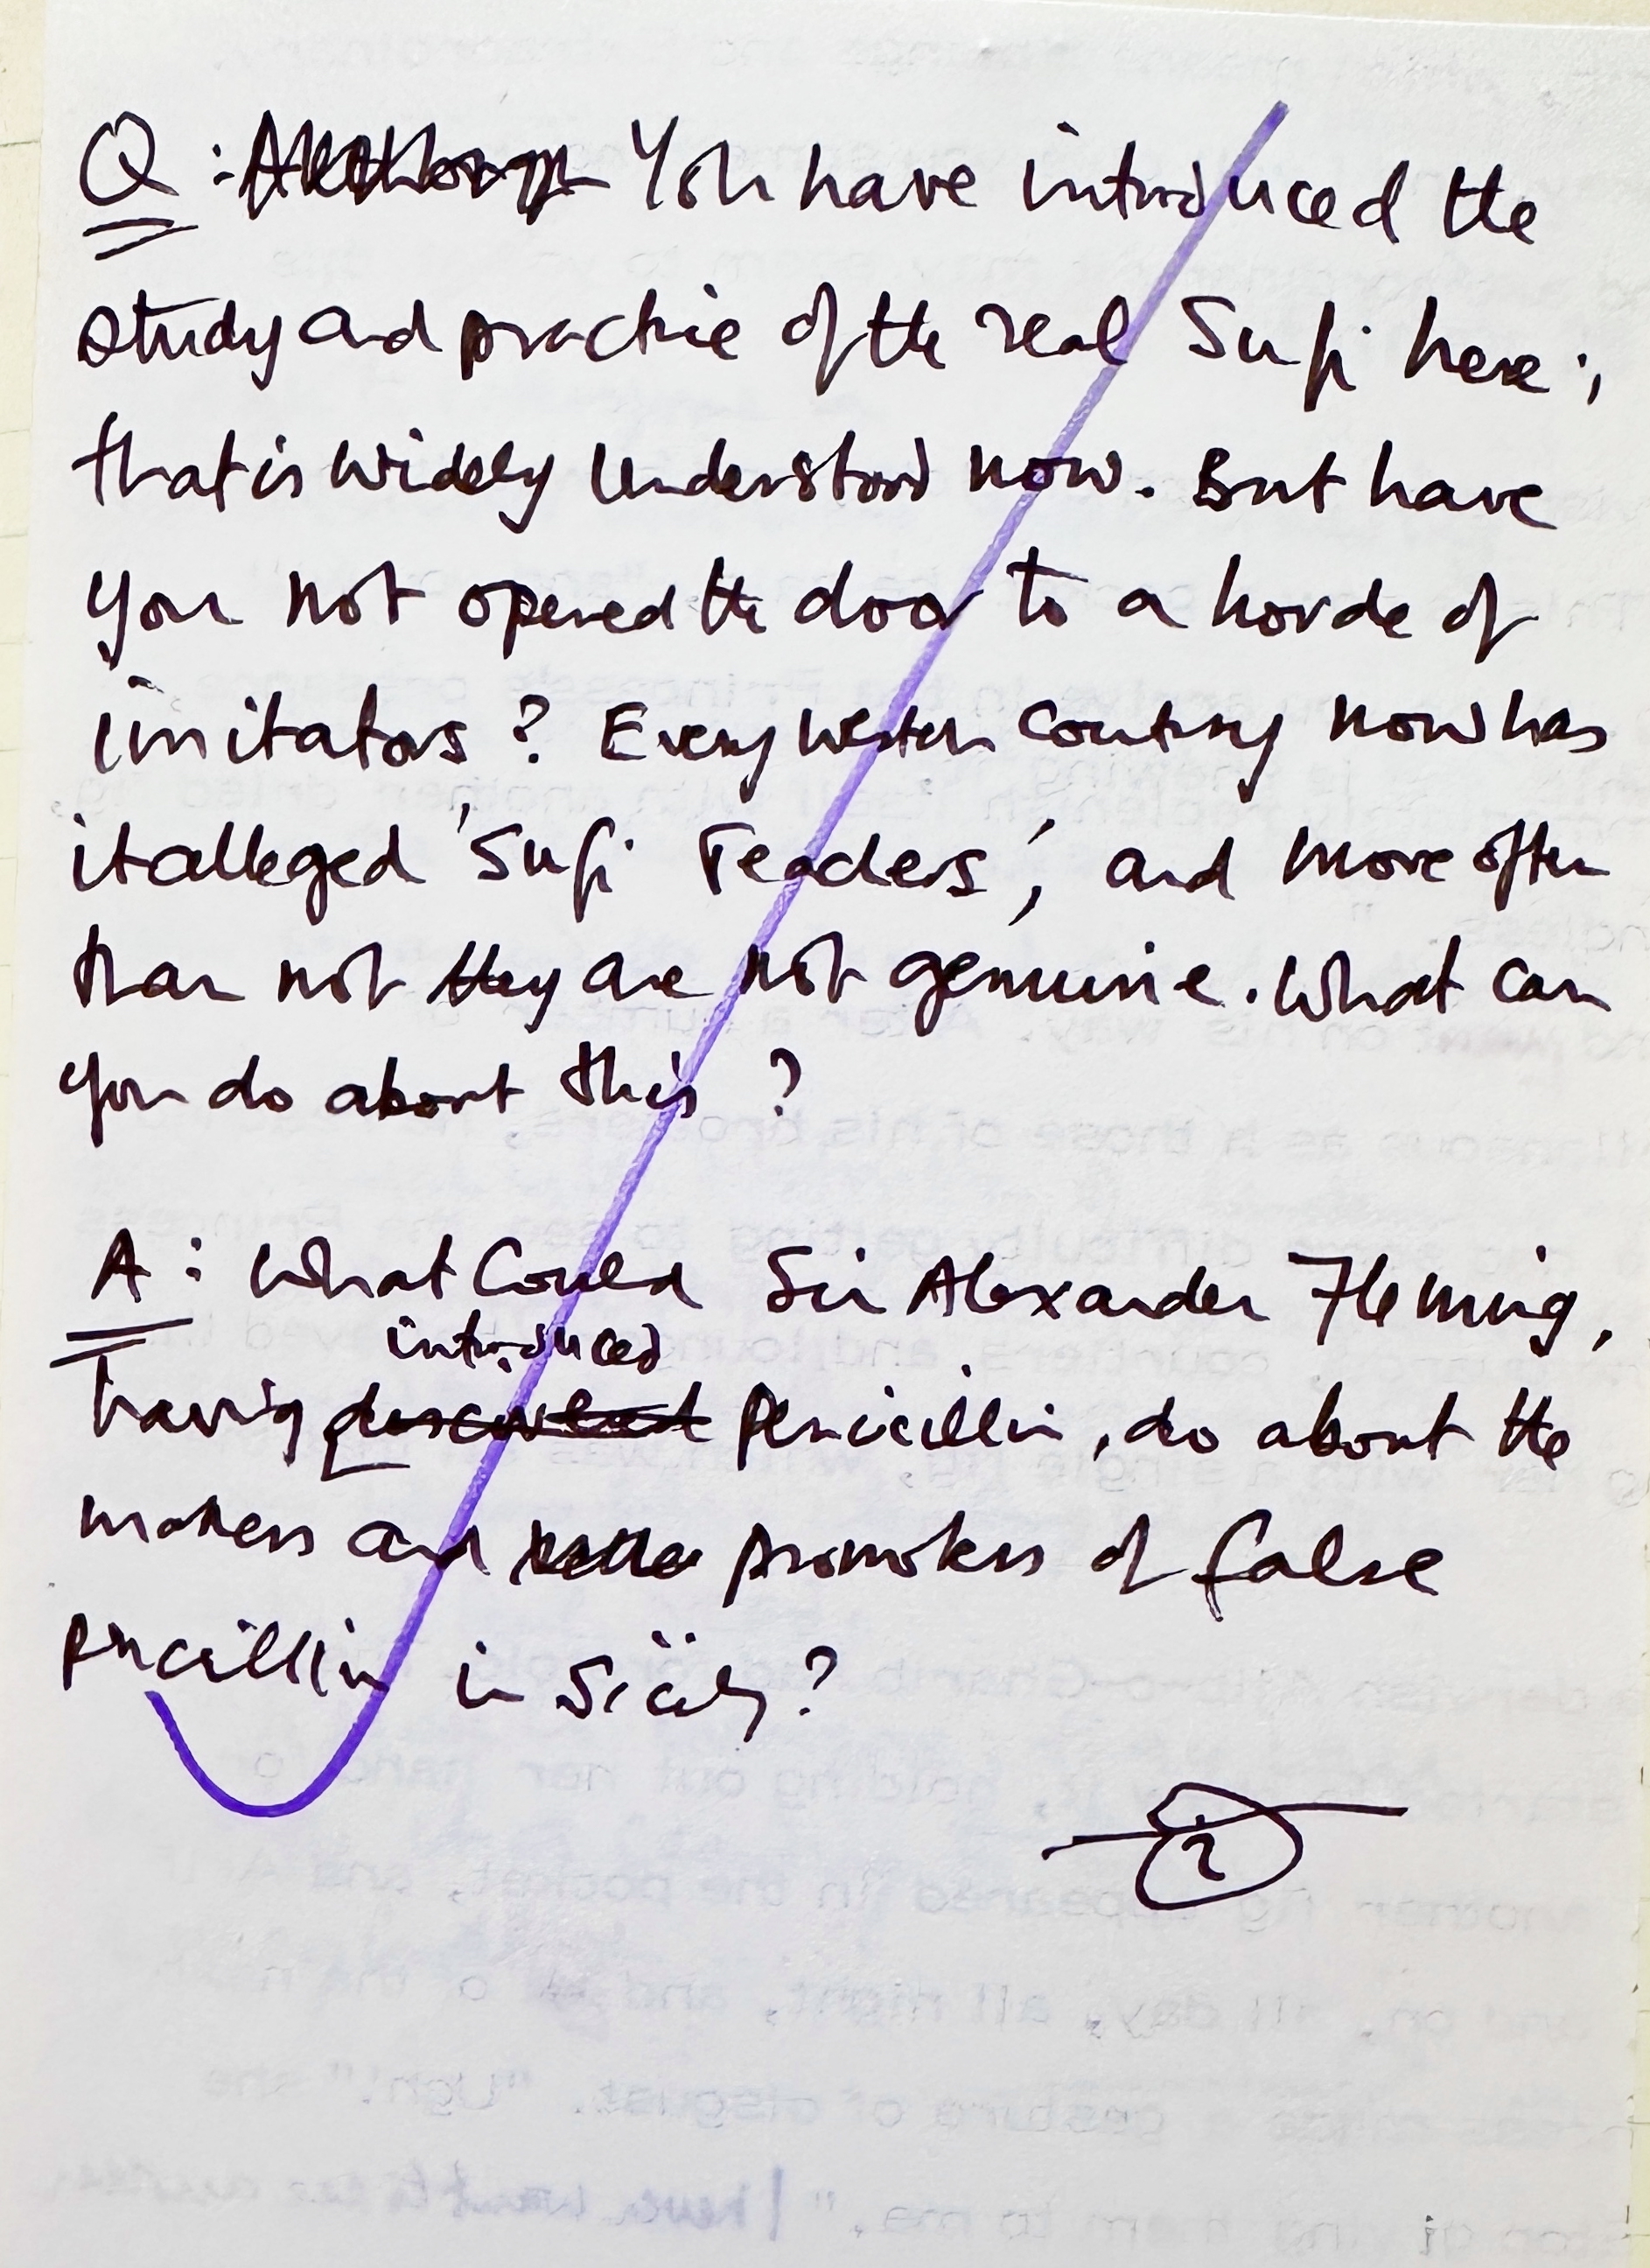 Q: Although You have introduced the
study and practice of the real Sufi here;
that is widely understood now. But have
you not opened the door to a horde of
imitators? Every Western country now has
it alleged 'Sufi Teachers', and more often
than not they are not genuine. What can
you do about this?
A: What Could Sir Alexander Fleming,
introduced
having discovered Penicillin, do about the
makers and promoters of false
pncillin in Sicily?
2